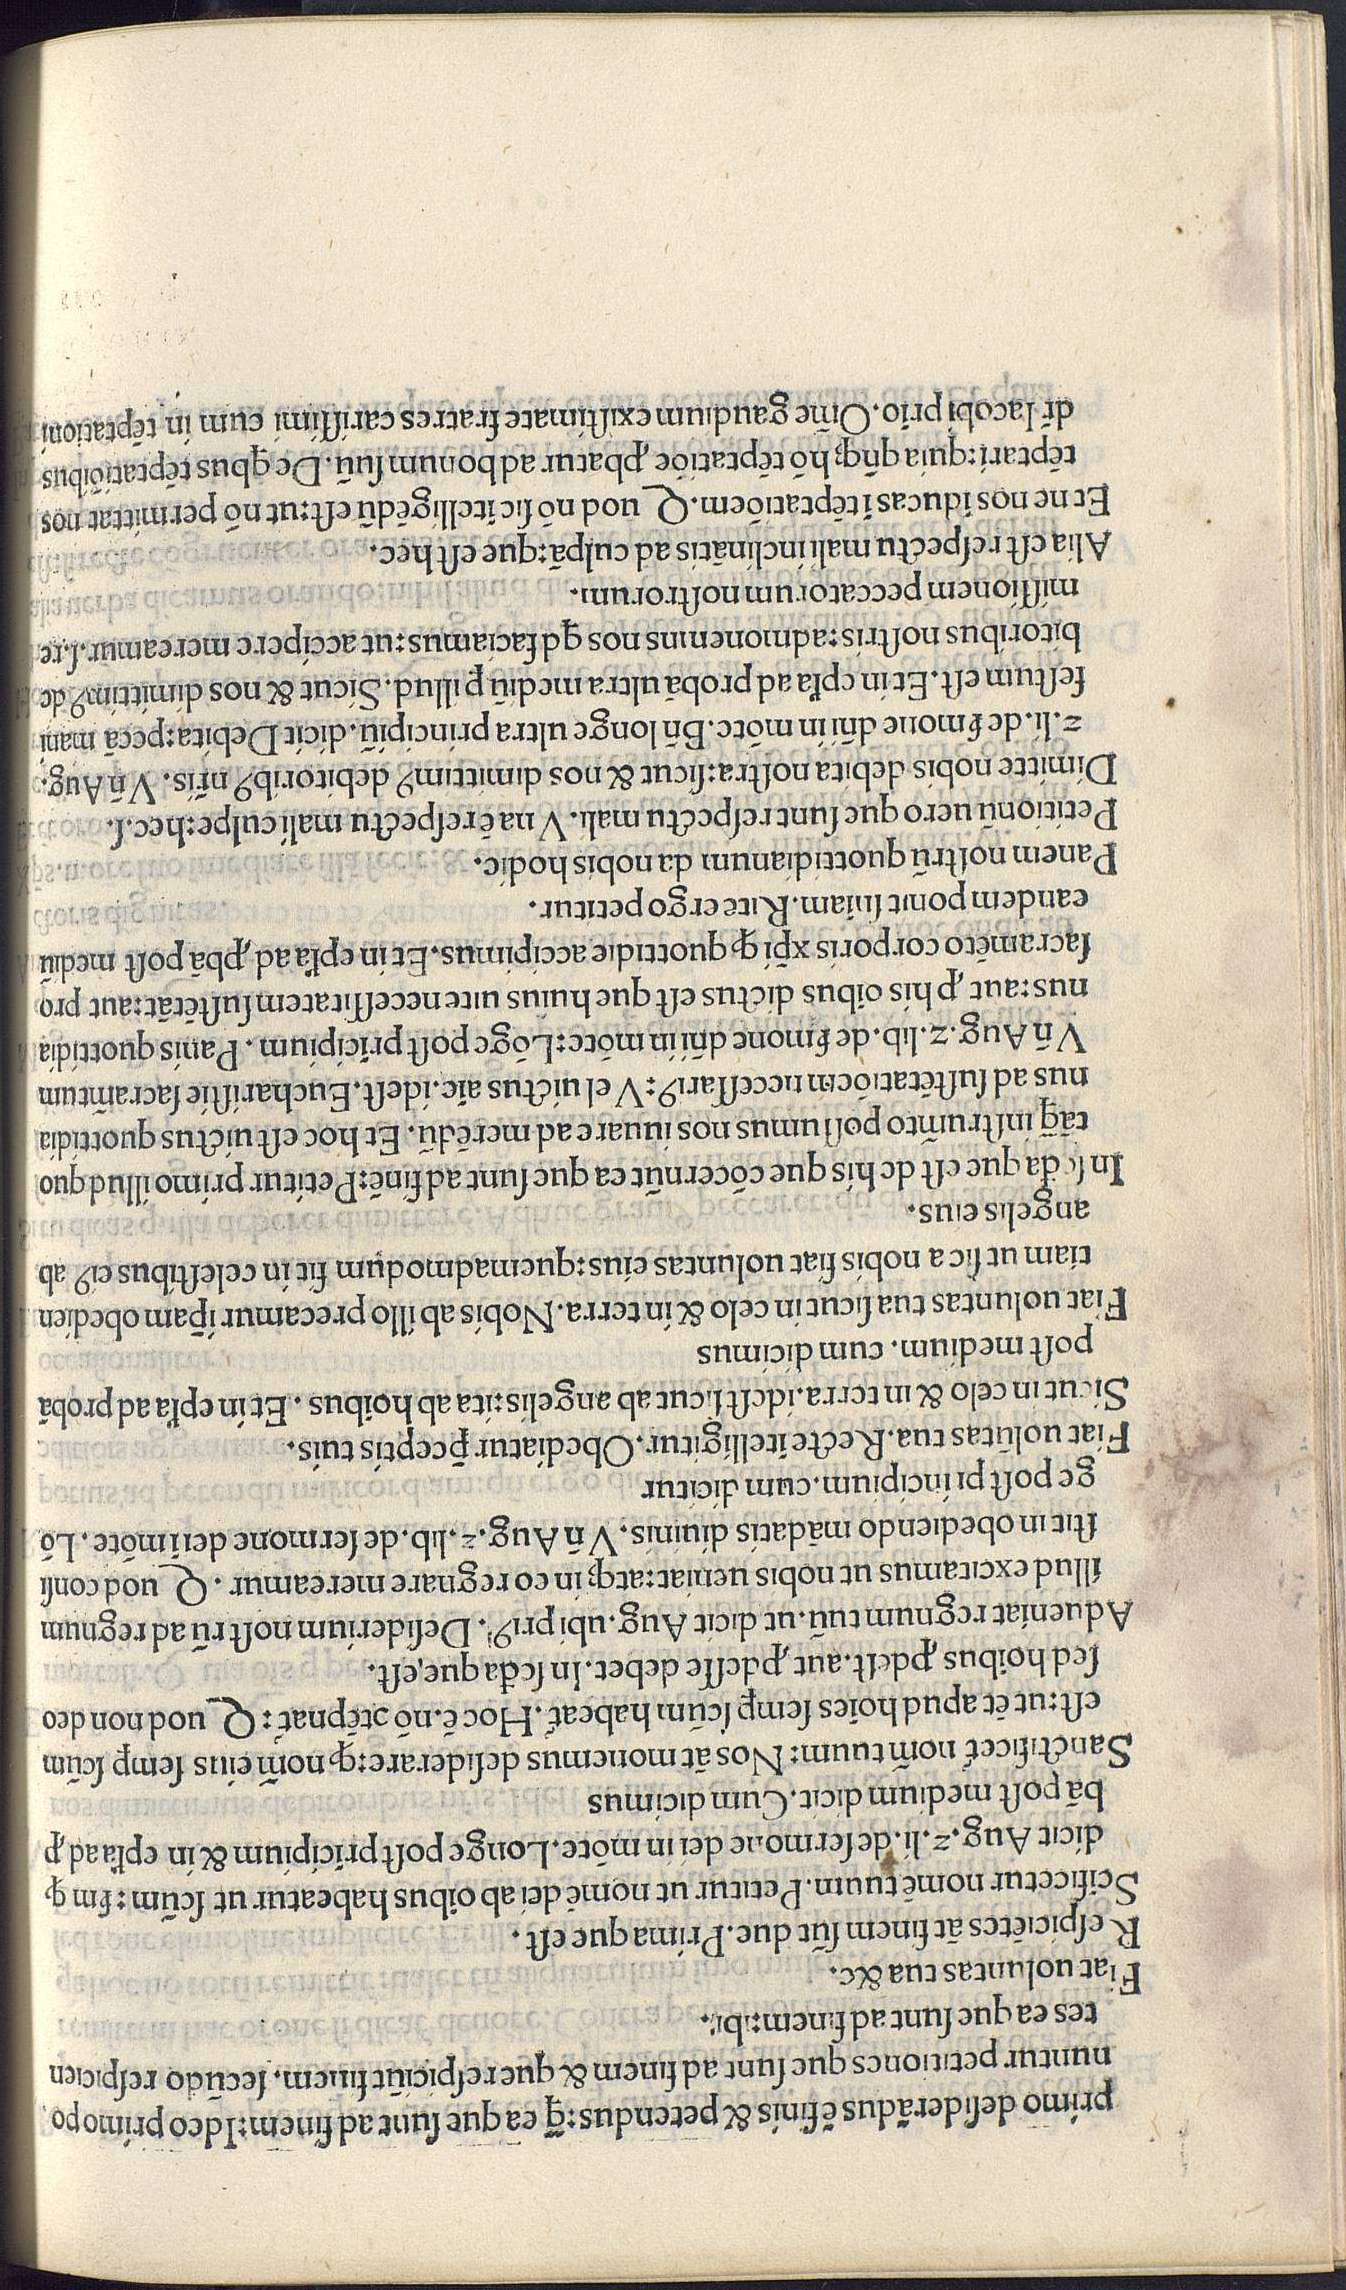 primo desiderādus ē finis & petendus: q̄ ea que sunt ad finem: Ideo primo po
nuntur petitiones que sunt ad finem & que respiciūt finem. secūdo respicien
tes ea que sunt ad finem: ibi.
Fiat uoluntas tua &c.
Respiciētes āt finem sūt due. Prima que est.
Scificetur nomē tuum. Petitur ut nomē dei ab oibus habeatur ut scūm: ẜm ꝙ
dicit Aug. z. li. de sermone dei in mōte. Longe post pricipium & in epl̄a ad ꝓ
bā post medium dicit. Cum dicimus
Sanctificet̄ nom̄ tuum: Nos āt monemus desiderare: ꝙ nom̄ eius semꝑ scūm
est: ut ēt apud hoīes semꝑ scūm habeat̄. Hoc ē. nō ɔtēpnat̄: Quod non deo
sed hoibus ꝓdest. aut ꝓdesse debet. In scda que, est.
Adueniat regnum tuū. ut dicit Aug. ubi priꝰ. Desiderium nostrū ad regnum
illud excitamus ut nobis ueniat: atqꝫ in eo regnare mereamur. Quod consi
stit in obediendo mādatis diuinis. Vn̄ Aug. z. lib. de sermone dei ī mōte. Lō
ge post principium. cum dicitur
Fiat uolūtas tua. Recte ītelligitur. Obediatur p̄ceptis tuis.
Sicut in celo & in terra. idest sicut ab angelis: ita ab hoibus. Et in epl̄a ad probā
post medium. cum dicimus
Fiat uoluntas tua sicut in celo & in terra. Nobis ab illo precamur ip̄am obedien
tiam ut sic a nobis fiat uoluntas eius: quemadmodum fit in celestibus eiꝰ ab
angelis eius.
In scda que est de his que cōcernūt ea que sunt ad finē: Petitur primo illud quo
tāq̄ instrum̄to possumus nos iuuare ad merēdū. Et hoc est uictus quottidia
nus ad sustētatiōem necessariꝰ: Vel uictus aīe. idest. Eucharistie sacram̄tum
Vn̄ Aug. z. lib. de ẜmone dn̄i in mōte: Lōge post pricipium. Panis quottidia
nus: aut ꝓ his oibus dictus est que huius uite necessitatem sustētāt: aut pro
sacramēto corporis xp̄i ꝙ quottidie accipimus. Et in epl̄a ad ꝓbā post mediū
eandem ponit sn̄iam. Rite ergo petitur.
Panem nostrū quottidianum da nobis hodie.
Petitionū uero que sunt respectu mali. Vna ē respectu mali culpe: hec. s.
Dimitte nobis debita nostra: sicut & nos dimittimꝰ debitoribꝰ nr̄is. Vn̄ Aug.
z. li. de ẜmone dn̄i in mōte. Bn̄ longe ultra principiū. dicit Debita: pecc̄a mani
festum est. Et in epl̄a ad probā ultra mediū ꝑ illud. Sicut & nos dimittimꝰ de
bitoribus nostris: admonemus nos qd faciamus: ut accipere mereamur. s. re
missionem peccatorum nostrorum.
Alia est respectu mali inclinātis ad culpā: que est hec.
Et ne nos iducas ī tēptatiōem. Quod nō sic ītelligēdū est: ut nō permittat nos
tēptari: quia qn̄qꝫ hō tēptatiōe ꝓbatur ad bonum suū. De qbus tēptatiōibus
dr̄ Iacobi prio. Om̄e gaudium existimate fratres carissimi cum in tēptationi